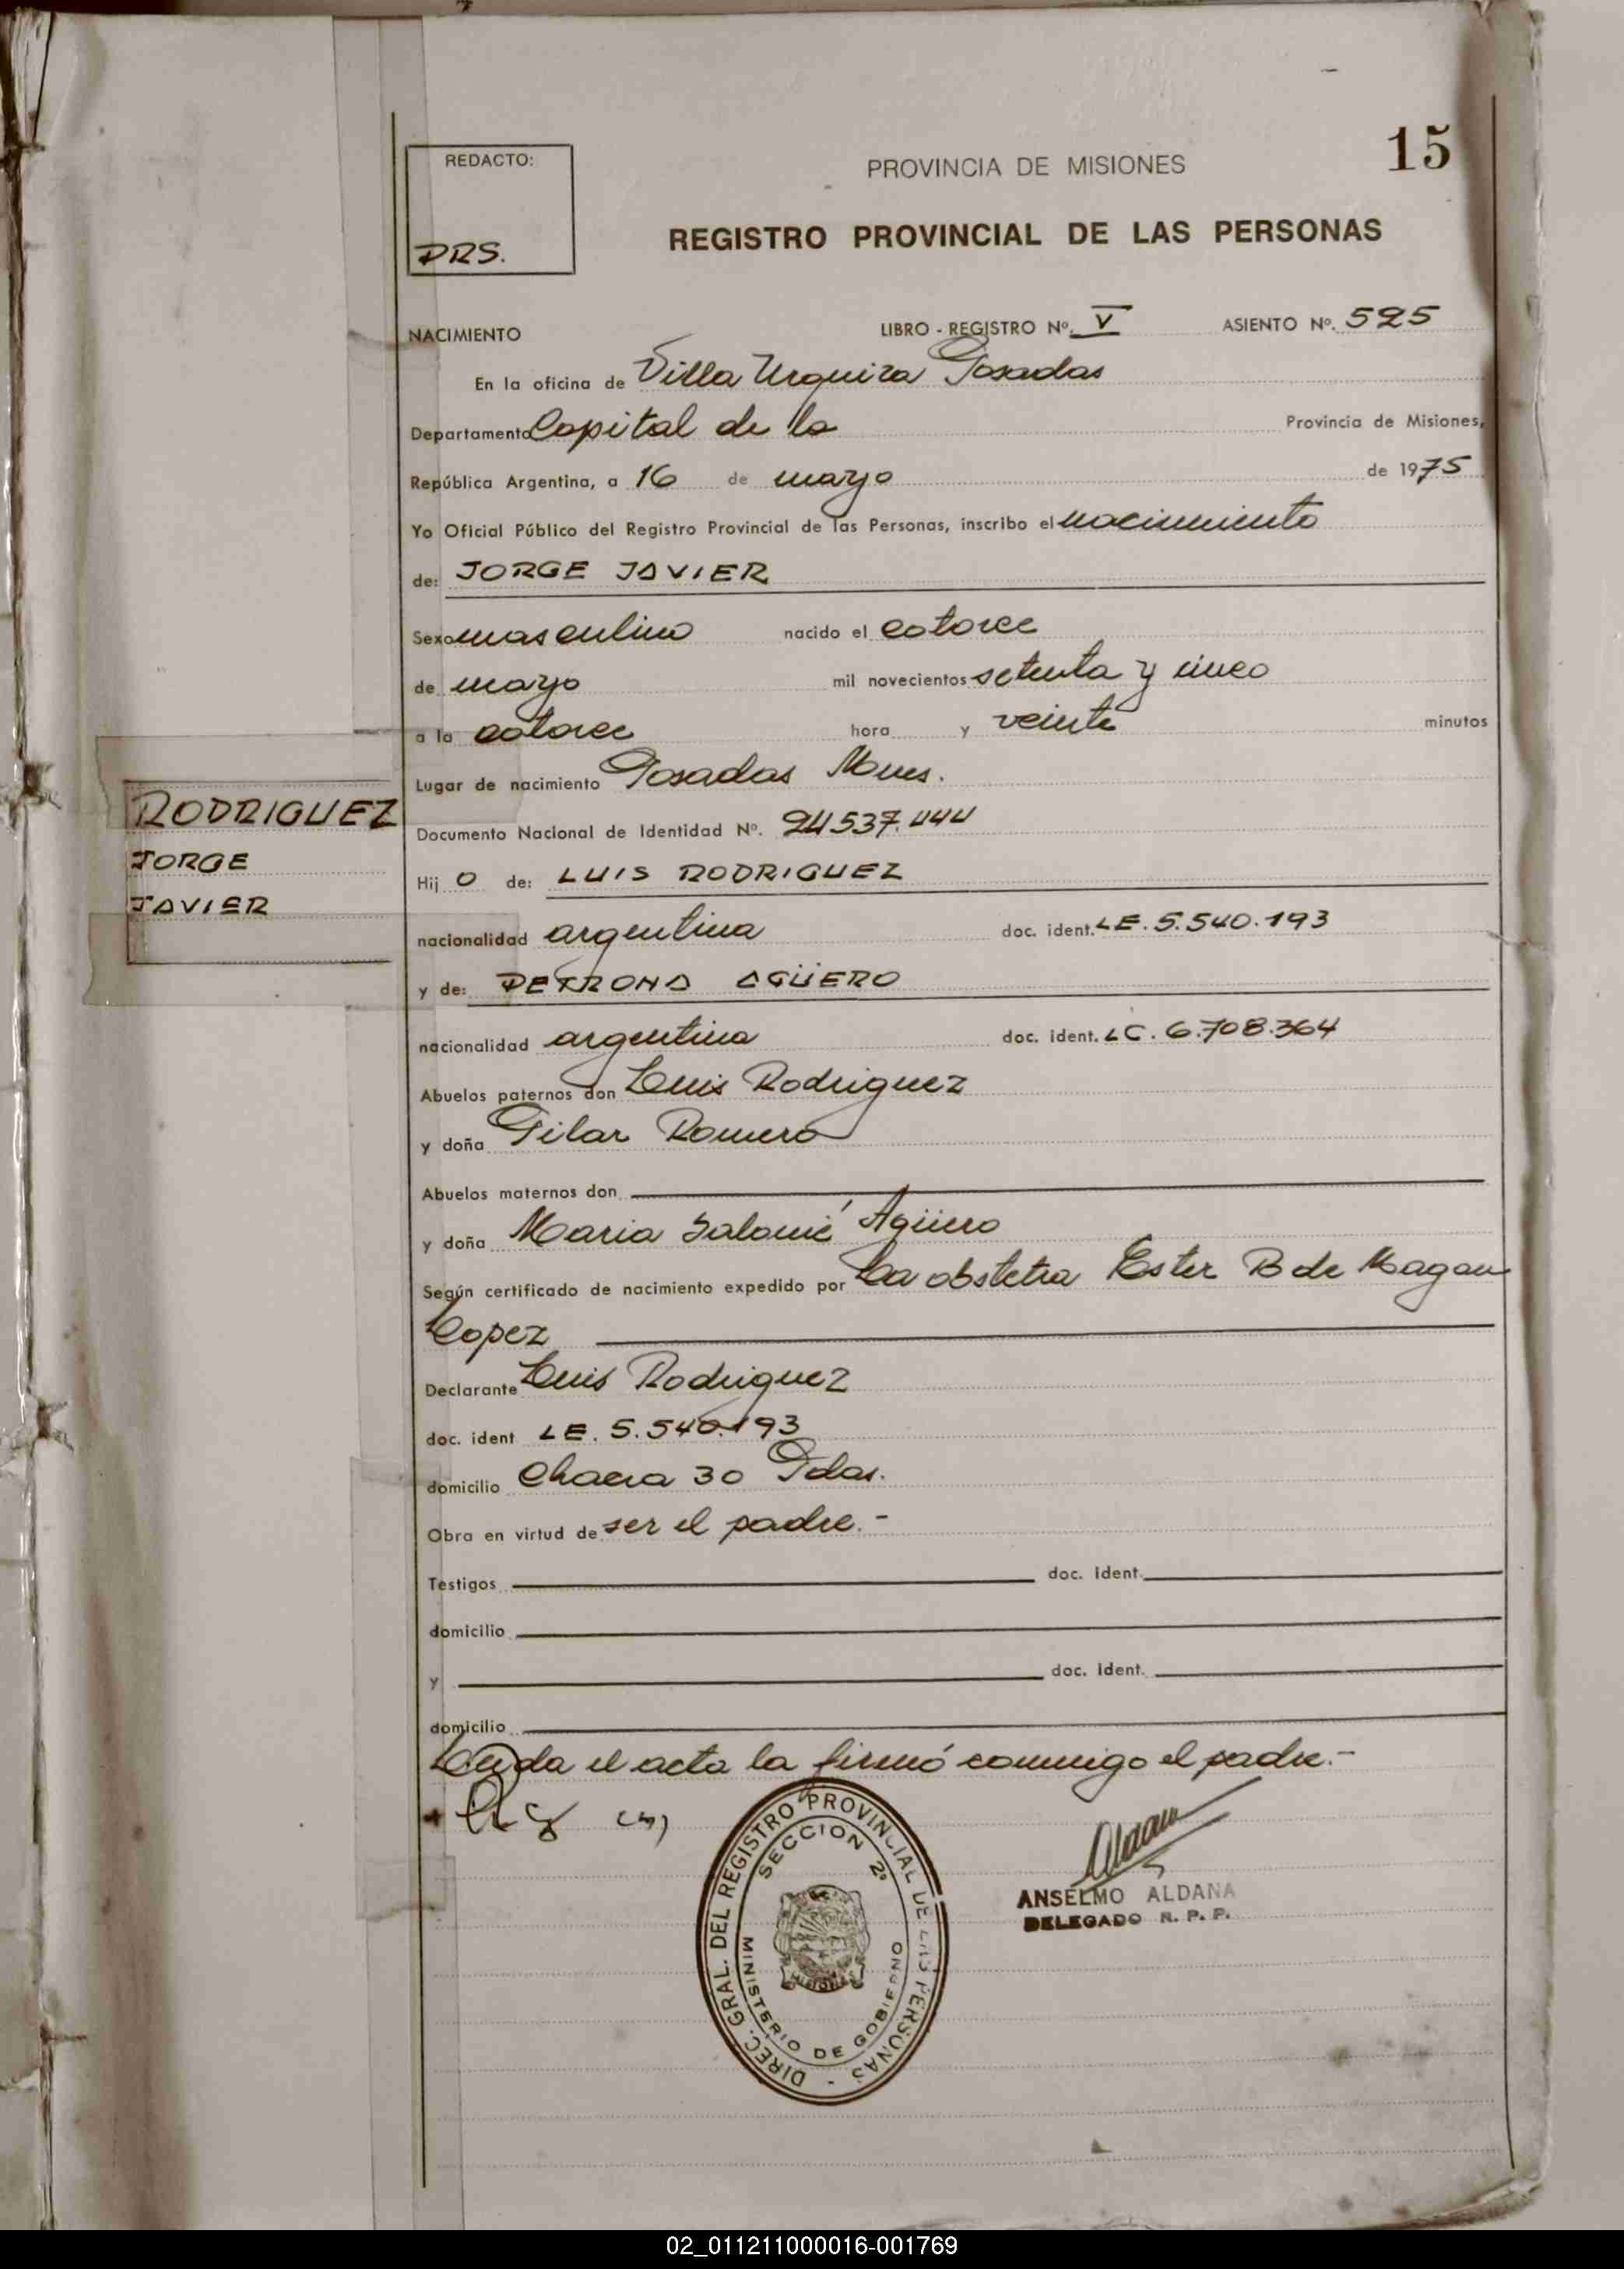 15
REDACTO:
DRS.
PROVINCIA DE MISIONES
REGISTRO PROVINCIAL DE LAS PERSONAS
NACIMIENTO LIBRO - REGISTRO Nº. V ASIENTO Nº. 525
En la oficina de Villa Urquiza Posadas
Departamento Capital de la Provincia de Misiones,
República Argentina, a 16 de mayo de 1975
Yo Oficial Público del Registro Provincial de las Personas, inscribo el nacimiento
de: JORGE JAVIER
Sexo masculino nacido el catorce
de mayo mil novecientos setenta y cinco
a la catorce hora y veinte minutos
Lugar de nacimiento Posadas Mnes.
RODRIGUEZ
JORGE
JAVIER
Documento Nacional de Identidad Nº. 24537.444
Hij o de: LUIS RODRIGUEZ
nacionalidad argentina doc. ident. LE. 5.540.193
y de: PETRONA AGÜERO
nacionalidad argentina doc. ident. LC. 6.708.364
Abuelos paternos don Luis Rodriguez
y doña Pilar Romero
Abuelos maternos don
y doña Maria Salomé Agüero
Según certificado de nacimiento expedido por La obstetra Ester B de Magan
Lopez
Declarante Luis Rodriguez
doc. ident LE. 5.540.193
domicilio Chacra 30 Pdas.
Obra en virtud de ser el padre.-
Testigos doc. ident.
domicilio
y doc. ident.
domicilio
Leida el acta la firmó conmigo el padre.-
DIREC. GRAL. DEL REGISTRO PROVINCIAL DE LAS PERSONAS -
SECCION 2º
MINISTERIO DE GOBIERNO
ANSELMO ALDANA
DELEGADO R. P. P.
02_011211000016-001769